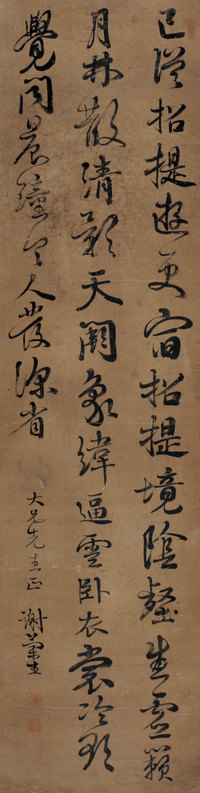 已從招提遊更宿招提境陰壑生虛籟
月林散清影天闕象緯逼雲臥衣裳冷欲
覺聞晨鐘令人發深省
大兄先生正 謝蘭生